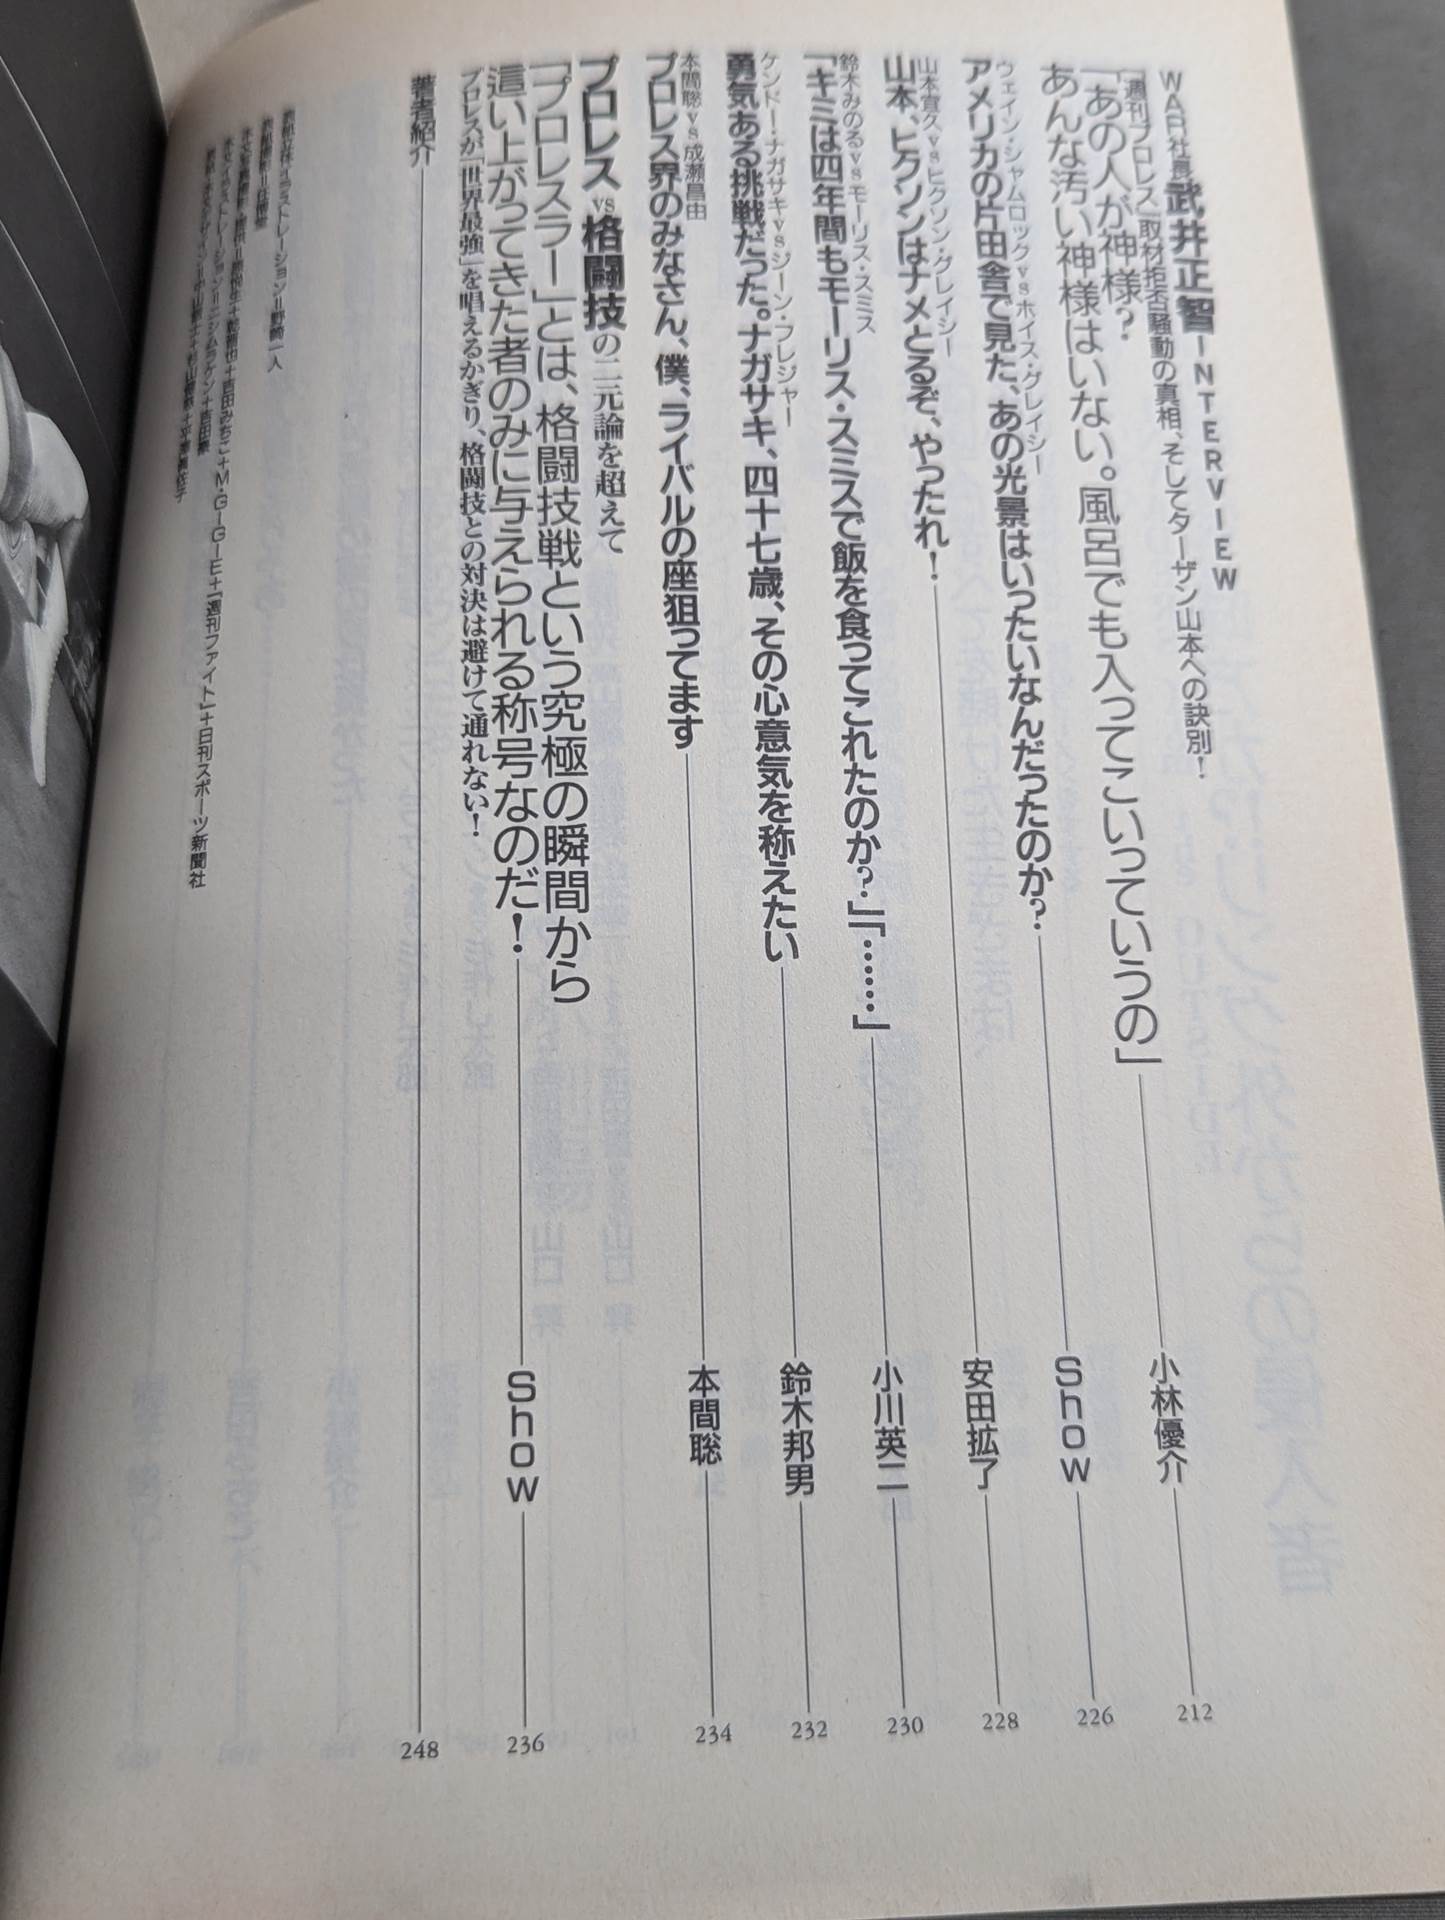 WAR社長 武井正智 INTERVIEW
『週刊プロレス』取材拒否騒動の真相、そしてターザン山本への訣別！
「あの人が神様？
あんな汚い神様はいない。風呂でも入ってこいっていうの」
小林優介
212
ウェイン・シャムロックvsホイス・グレイシー
アメリカの片田舎で見た、あの光景はいったいなんだったのか？
Show
226
山本宜久vsヒクソン・グレイシー
山本、ヒクソンはナメとるぞ、やったれ！
安田拡了
228
鈴木みのるvsモーリス・スミス
「キミは四年間もモーリス・スミスで飯を食ってこれたのか？」「……」
小川英二
230
ケンドー・ナガサキvsジーン・フレジャー
勇気ある挑戦だった。ナガサキ、四十七歳、その心意気を称えたい
鈴木邦男
232
本間聡vs成瀬昌由
プロレス界のみなさん、僕、ライバルの座狙ってます
本間聡
234
プロレスvs格闘技の二元論を超えて
「プロレスラー」とは、格闘技戦という究極の瞬間から
這い上がってきた者のみに与えられる称号なのだ！
プロレスが「世界最強」を唱えるかぎり、格闘技との対決は避けて通れない！
Show
236
著者紹介
248
イラストレーション＝野崎一人
吉田みちこ＋M・G-GIE＋『週刊ファイト』＋日刊スポーツ新聞社